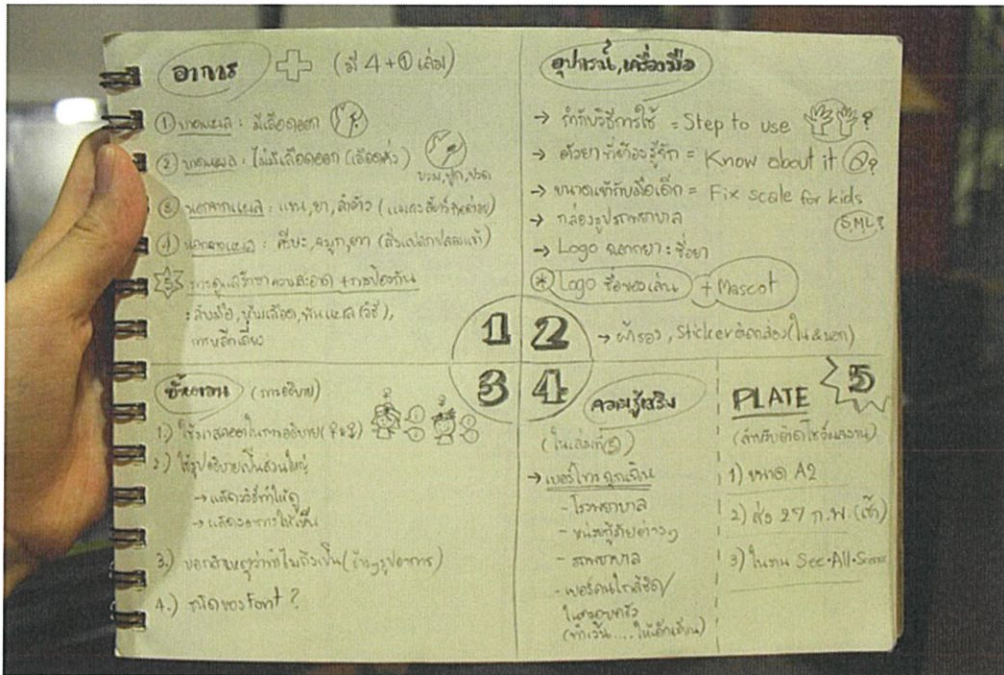 อาการ (มี 4+① เล่ม)
① บาดแผล : มีเลือดออก
② บาดแผล : ไม่มีเลือดออก (เลือดคั่ง)
บวม, ปวด
③ นอกจากแผล : แขน, ขา, ลำตัว
④ นอกจากแผล : ศีรษะ, จมูก, ตา (สิ่งแปลกปลอมเข้า)
5 การดูแลรักษาความสะอาด + การป้องกัน
: ล้างมือ, ห้ามเลือด, พันแผล (วิธี),
การหลีกเลี่ยง
1
อุปกรณ์, เครื่องมือ
→ กำกับวิธีการใช้ = Step to use ?
→ ตัวยาที่ต้องรู้จัก = Know about it ?
→ ขนาดเข้ากับมือเด็ก = Fix scale for kids
→ กล่องรูปรถพยาบาล S,M,L?
→ Logo ฉลากยา : ชื่อยา
* Logo ชื่อของเล่น + Mascot
→ ผ้ารอง, Sticker ติดกล่อง (ใน & นอก)
2
3
ขั้นตอน (การอธิบาย)
1.) ใช้มาสคอตในการอธิบาย
2.) ใช้รูปอธิบายเป็นส่วนใหญ่
→ แสดงวิธีทำให้ดู
→ แสดงอาการให้เห็น
3.) บอกสาเหตุว่าทำไมถึงเป็น (ข้างๆรูปอาการ)
4.) ชนิดของ Font ?
4
ความรู้เสริม
(ในเล่มที่ ⑤)
→ เบอร์โทรฉุกเฉิน
- โรงพยาบาล
- หน่วยกู้ภัยต่างๆ
- รถพยาบาล
- เบอร์คนใกล้ชิด/
ในครอบครัว
(ทำเว้น....ให้เด็กเขียน)
PLATE 5
(สำหรับจัดโชว์ผลงาน)
1) ขนาด A2
2) ส่ง 27 ก.พ. (เช้า)
3) ในงาน See•All•